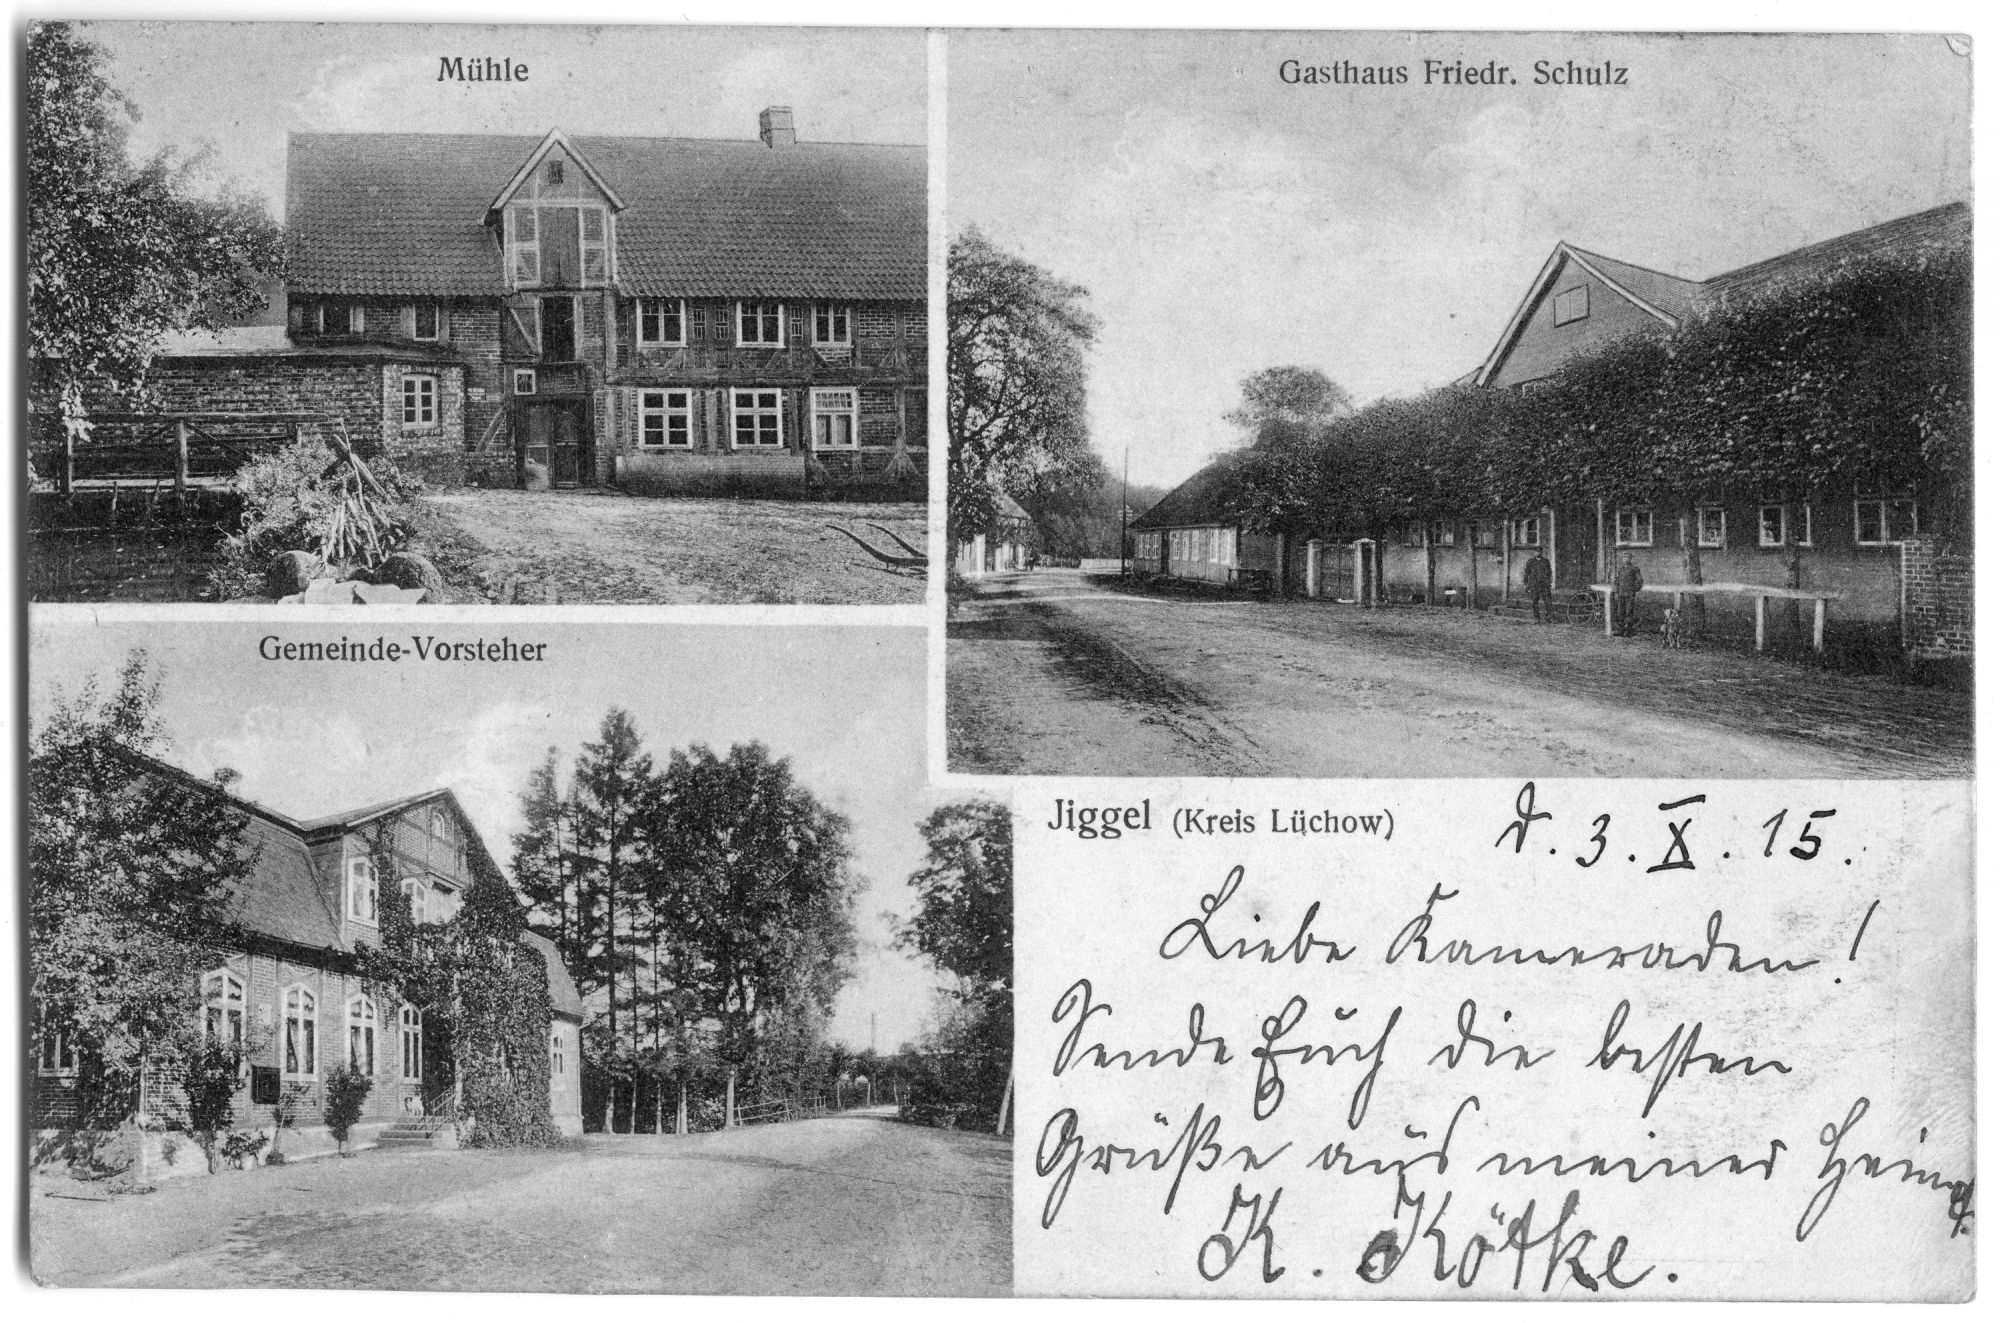 Mühle
Gasthaus Friedr. Schulz
Gemeinde-Vorsteher
Jiggel (Kreis Lüchow)
d. 3. X. 15.
Liebe Kameraden!
Sende Euch die besten
Grüße aus meiner Heimat.
K. Kötke.